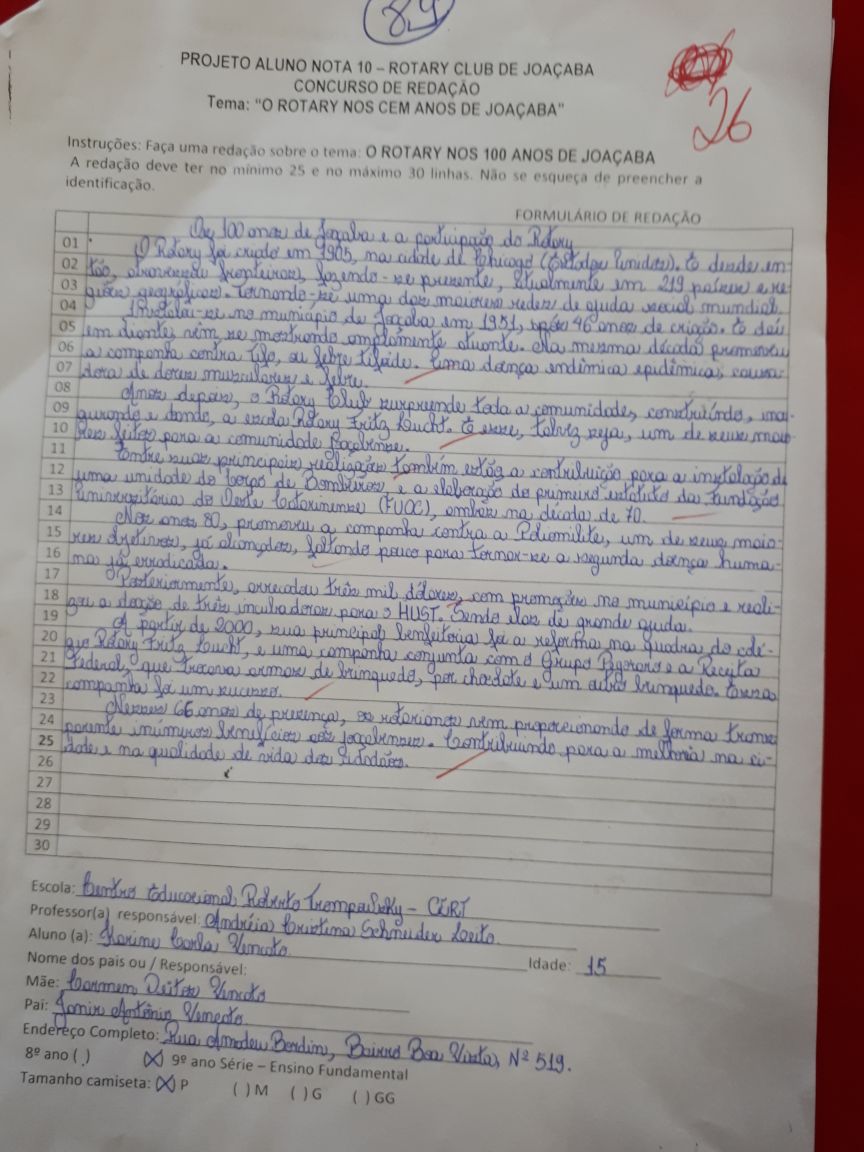 8,9
PROJETO ALUNO NOTA 10 – ROTARY CLUB DE JOAÇABA
CONCURSO DE REDAÇÃO
Tema: "O ROTARY NOS CEM ANOS DE JOAÇABA"
26
Instruções: Faça uma redação sobre o tema: O ROTARY NOS 100 ANOS DE JOAÇABA
A redação deve ter no mínimo 25 e no máximo 30 linhas. Não se esqueça de preencher a
identificação.
FORMULÁRIO DE REDAÇÃO
Os 100 anos de Joaçaba e a participação do Rotary
01 O Rotary foi criado em 1905, na cidade de Chicago (Estados Unidos). E desde en-
02 tão, atravessa fronteiras, fazendo-se presente, atualmente em 219 países e re-
03 giões geográficas. Tornando-se uma das maiores redes de ajuda social mundial.
04 Instalou-se no município de Joaçaba em 1951, após 46 anos de criação. E daí
05 em diante vêm se mostrando amplamente atuante. Na mesma década promoveu
06 a campanha contra tifo, ou febre tifoide. Uma doença endêmica epidêmica, causa-
07 dora de dores musculares e febre.
08 Anos depois, o Rotary Club surpreende toda a comunidade, construindo, inau-
09 gurando e doando, a escola Rotary Fritz Lucht. E esse, talvez seja, um de seus maio-
10 res feitos para a comunidade
11 Entre suas principais realizações também estão a contribuição para a instalação de
12 uma unidade do Corpo de Bombeiros e a elaboração do primeiro estatuto da Fundação
13 Universitária do Oeste Catarinense (FUOC), ambos na década de 70.
14 Nos anos 80, promoveu a campanha contra a Poliomilite, um de seus maio-
15 res objetivos, já alcançados, faltando pouco para tornar-se a segunda doença huma-
16 na já erradicada.
17 Posteriormente, arrecadou três mil dólares, com promoções no município e reali-
18 zou a doação de três incubadoras para o HUST. Sendo elas de grande ajuda.
19 A partir de 2000, sua principal benfeitoria foi a reforma na quadra do colé-
20 gio Rotary Fritz Lucht, e uma campanha conjunta com o Grupo Pigozzo e a Receita
21 Federal, que trocava armas de brinquedo, por chocolate e um outro brinquedo.
22 campanha foi um sucesso.
23 Nesses 66 anos de presença, os rotarianos vem proporcionando de forma trans-
24 parente inúmeros benefícios aos joaçabenses. Contribuindo para a melhoria na ci-
25 dade e na qualidade de vida dos cidadãos.
26
27
28
29
30
Escola: Centro Educacional Roberto Trompowsky - CERT
Professor(a) responsável: Andréia Cristina Schneider Leite
Aluno (a): Karine Carla Venceto
Nome dos pais ou / Responsável: Idade: 15
Mãe: Carmen Venceto
Pai: Antônio Venceto
Endereço Completo: Rua Amadeu Bordin, Bairro Boa Vista, Nº 519.
8º ano ( ) (X) 9º ano Série – Ensino Fundamental
Tamanho camiseta: (X) P ( ) M ( ) G ( ) GG